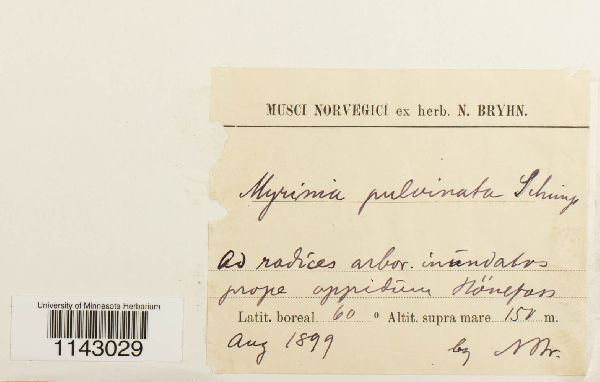 MUSCI NORVEGICI ex herb. N. BRYHN.
Myrinia pulvinata Schimp
Ad radices arbor. inundatos
prope oppidum Hönefoss
Latit. boreal. 60 ° Altit. supra mare 150 m.
Aug 1899 leg NBr.
University of Minnesota Herbarium
1143029